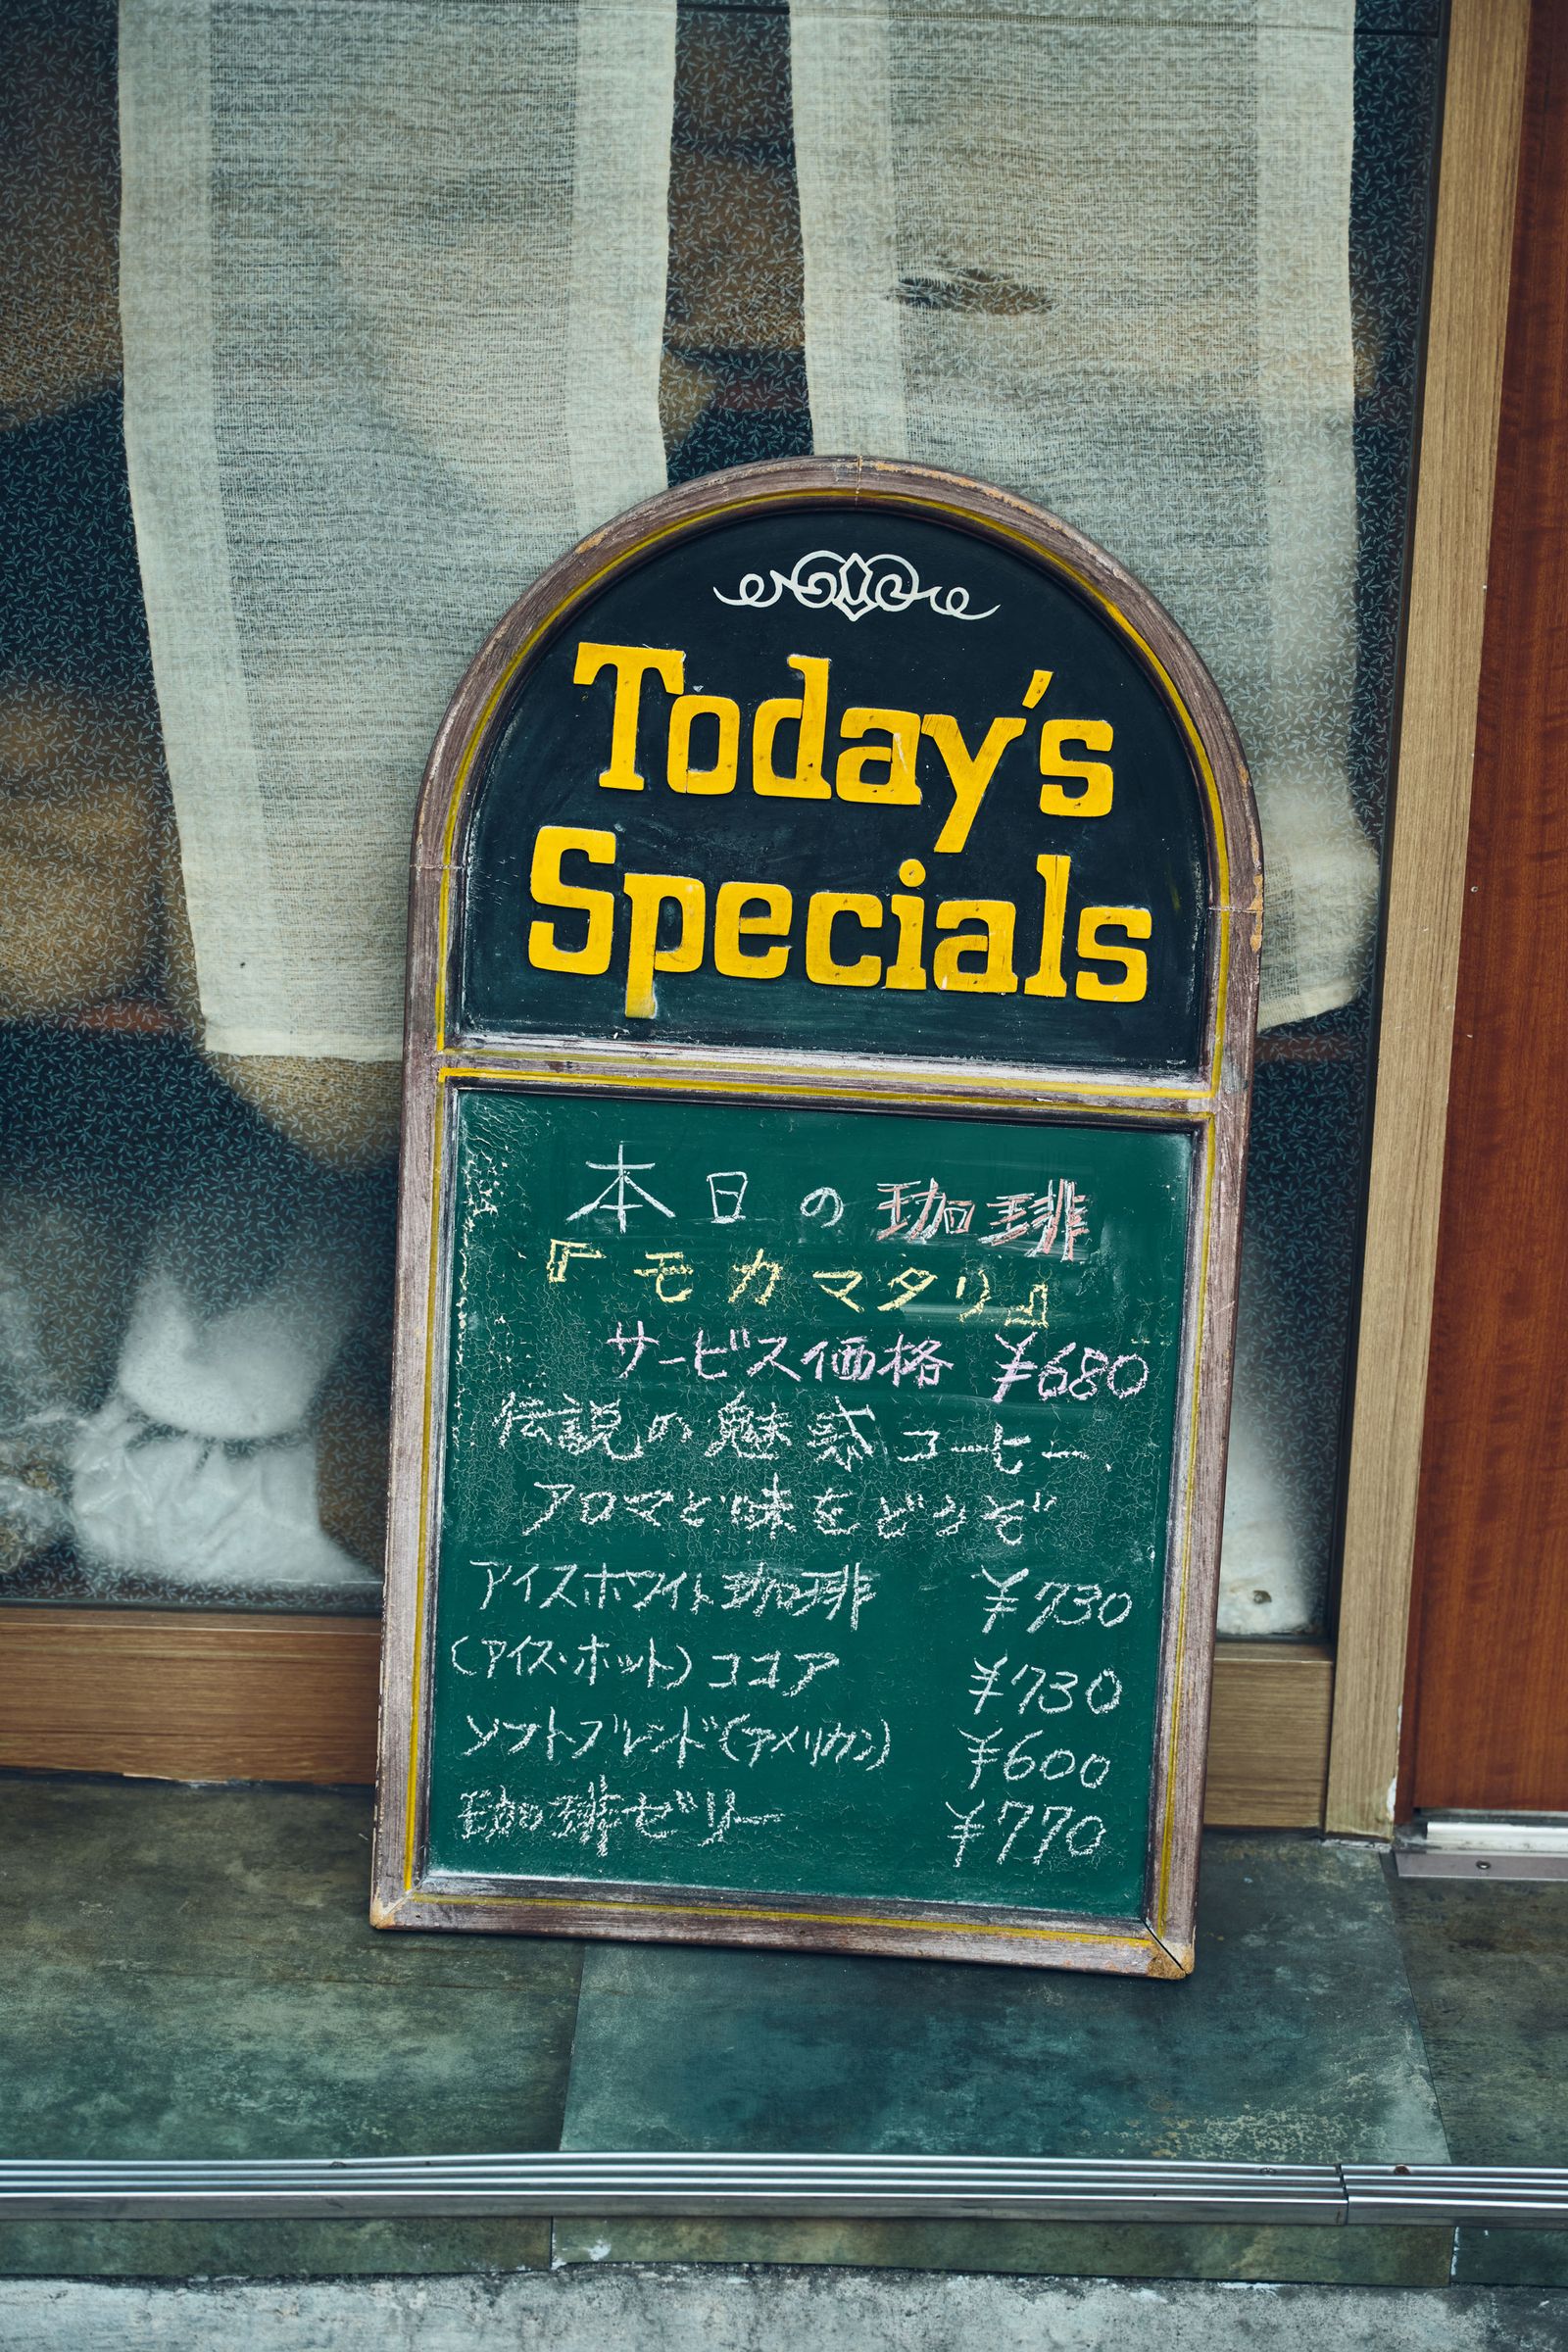 Today's
Specials
本日の珈琲
『モカマタリ』
サービス価格 ¥680
伝説の魅惑コーヒー.
アロマと味をどうぞ
アイスホワイト珈琲 ¥730
(アイス・ホット)ココア ¥730
ソフトブレンド(アメリカン) ¥600
珈琲ゼリー ¥770